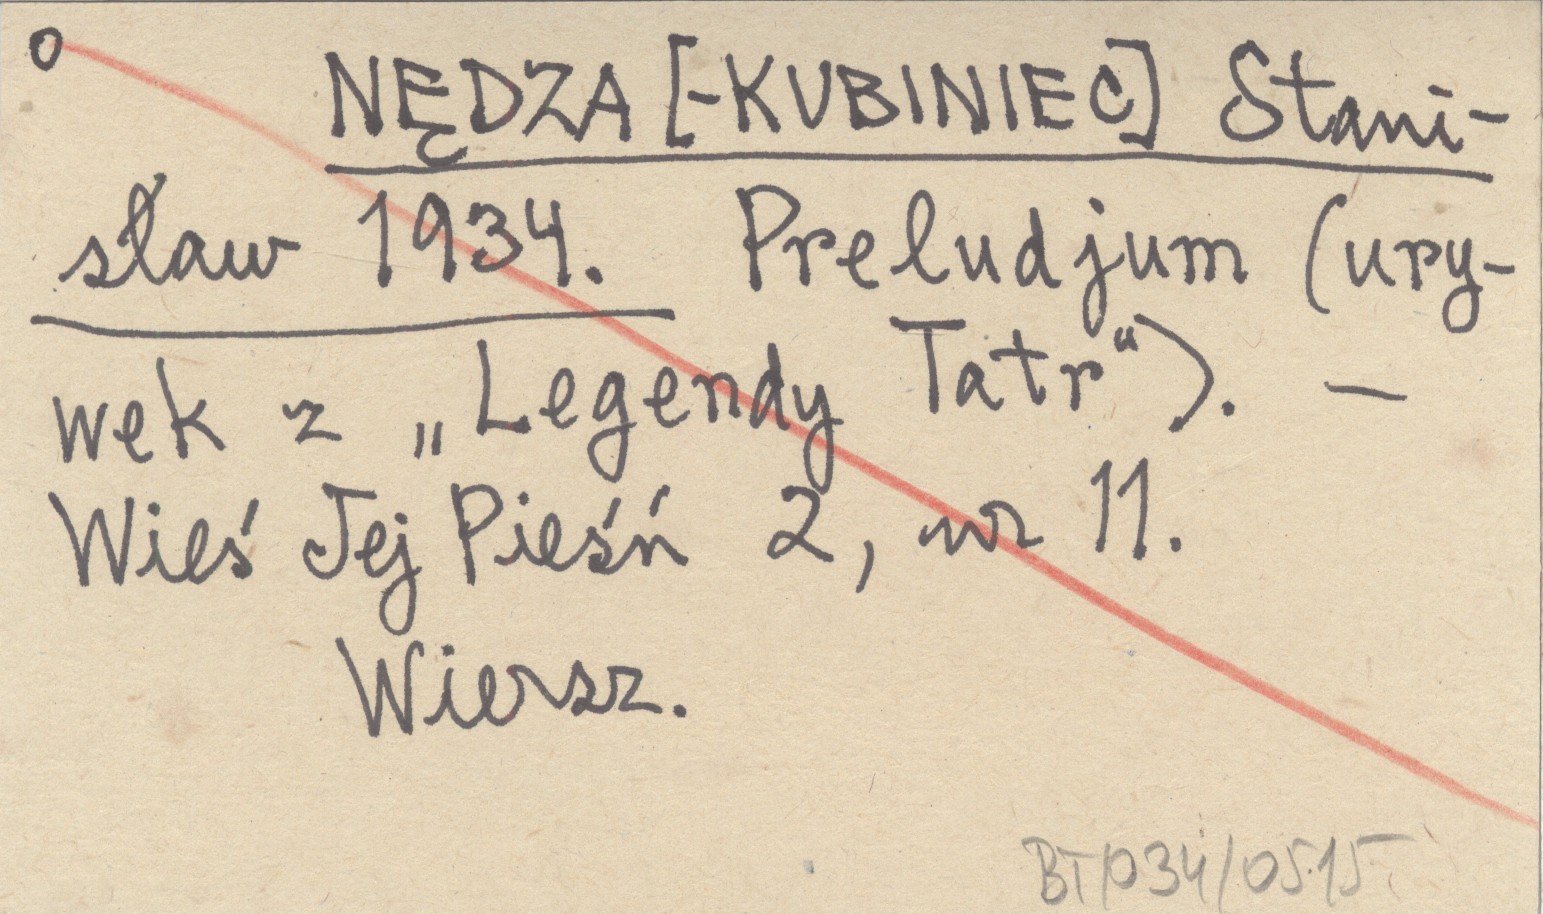 o NĘDZA [-KUBINIEC] Stani-
sław 1934. Preludjum (ury-
wek z „Legendy Tatr“). —
Wieś Jej Pieśń 2, nr 11.
Wiersz.
BT/034/0515